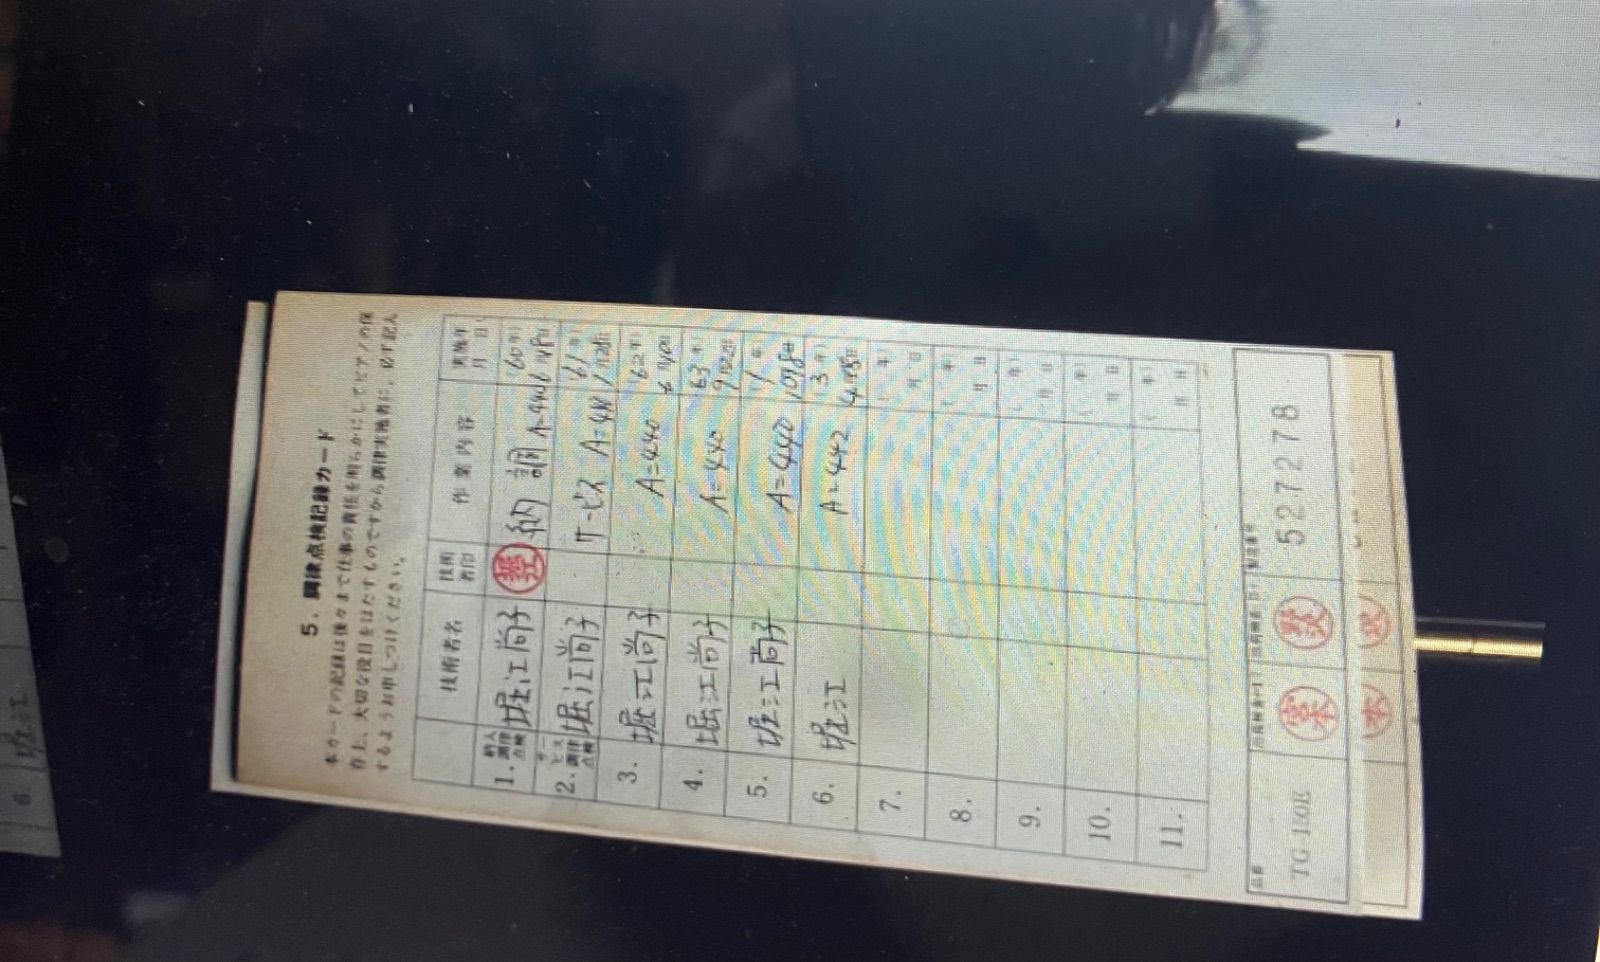 5. 調律点検記録カード
本カードの記録は後々まで仕事の責任を明らかにしてピアノの保
存上、大切な役目をはたすものですから調律実施者に、必ず記入
するようお申しつけください。
技術者名 技術者印 作業内容 実施年月日
1. 納入調律点検 堀江尚子 堀江 納調 A=440 60年
2. サービス調律点検 堀江尚子 サービス A=441 61年
3. 堀江尚子 A=440 62年
4. 堀江尚子 A=440 63年
5. 堀江尚子 A=440 1年
6. 堀江 A=442 3年
7. 年 月 日
8. 年 月 日
9. 年 月 日
10. 年 月 日
11. 年 月 日
TG 10E 527278
6 堀江